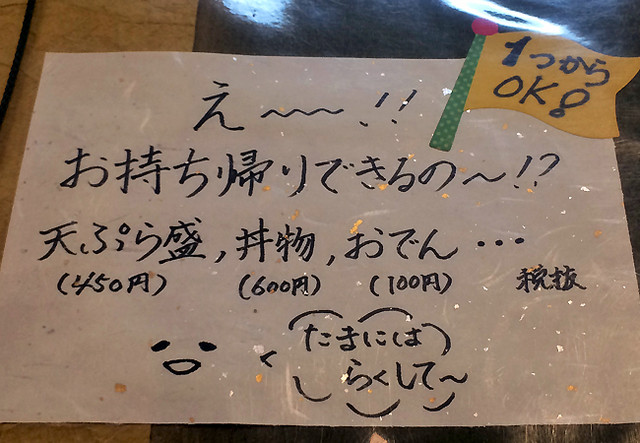 1つから
OK!
え〜〜!!
お持ち帰りできるの〜!?
天ぷら盛,丼物,おでん・・・
(450円) (600円) (100円) 税抜
たまには
らくして〜